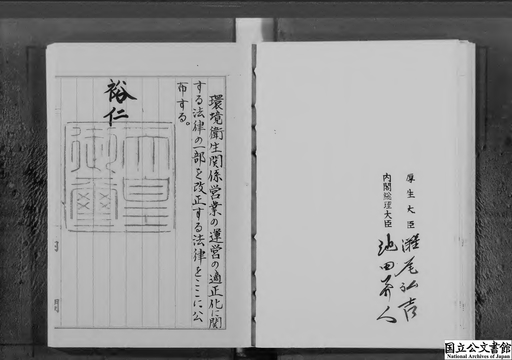 環境衛生関係営業の運営の適正化に関
する法律の一部を改正する法律をここに公
布する。
裕仁
天皇
御璽
厚生大臣 灘尾弘吉
内閣総理大臣 池田勇人
国立公文書館
National Archives of Japan